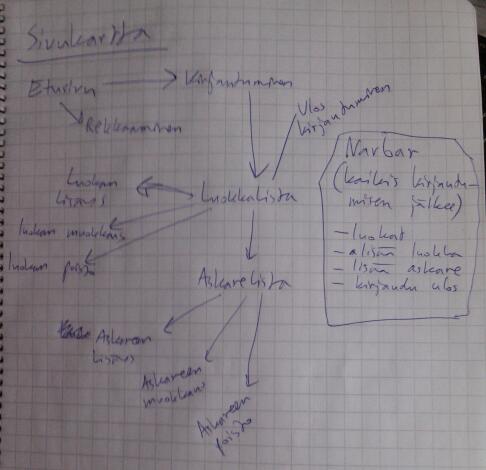 Sivukartta
Etusivu
Kirjautuminen
Rekkaaminen
Ulos
kirjautuminen
Luokan
lisäys
Luokkalista
luokan muokkaus
luokan poisto
Askarelista
Askareen
lisäys
Askareen
muokkaus
Askareen
poisto
Navbar
(kaikis kirjautu-
misen jälkee)
- luokat
- alisää luokka
- lisää askare
- kirjaudu ulos